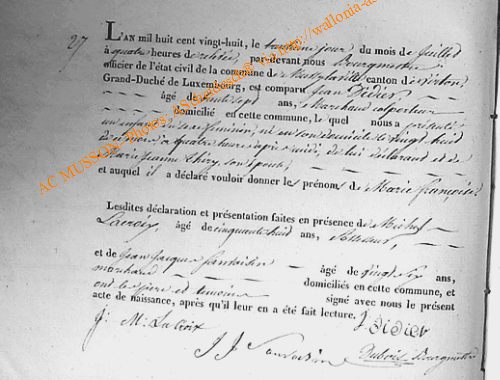 27
L'AN mil huit cent vingt-huit, le troisième jour du mois de Juillet
à quatre heures de relevée, par-devant nous Bourgmestre
officier de l'état civil de la commune de canton de Virton
Grand-Duché de Luxembourg, est comparu Jean Didier
âgé de trente sept ans, Marchand colporteur
domicilié en cette commune, le quel nous a présenté
un enfant du sexe féminin, né en son domicile le vingt huit
à quatre heures après midi, de lui déclarant et de
Marie Jeanne Thiry son épouse,
et auquel il a déclaré vouloir donner les prénoms de Marie françoise.
Lesdites déclaration et présentation faites en présence de Michel
Lacroix, âgé de cinquante huit ans,
et de Jean Jacques âgé de vingt six ans,
marchand domiciliés en cette commune, et
ont le père et témoins signé avec nous le présent
acte de naissance, après qu'il leur en a été fait lecture. J Didier
J: M: La Croix
J J Dubois Bourgmestre
AC MUSSON - Photos
http://wallonia-as